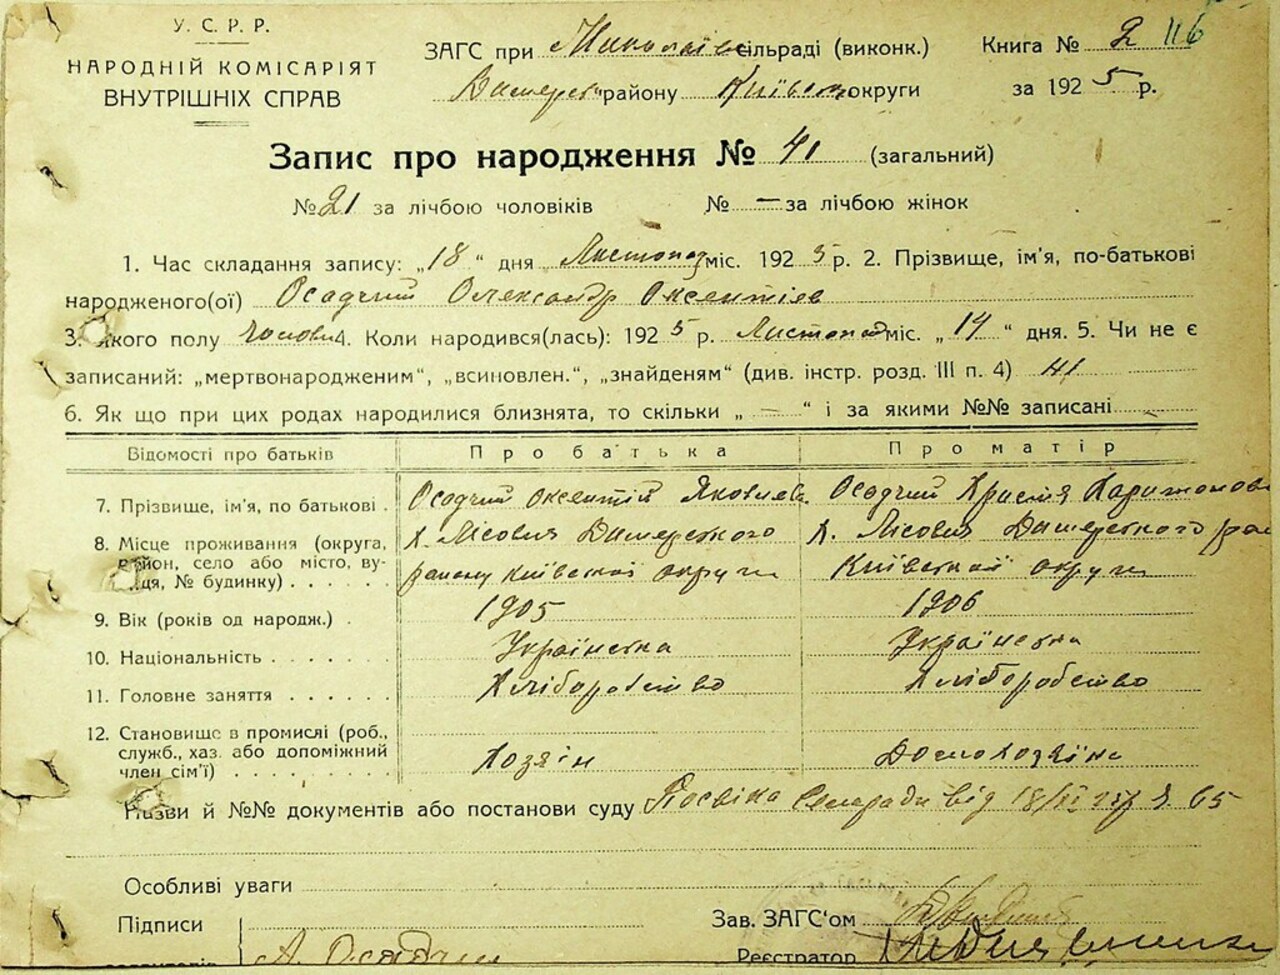 У. С. Р. Р.
НАРОДНІЙ КОМІСАРІЯТ
ВНУТРІШНІХ СПРАВ
ЗАГС при Миколаїв сільраді (виконк.)
Димерськ району Київськ округи
Книга № 2 116
за 1925 р.
Запис про народження № 41 (загальний)
№ 21 за лічбою чоловіків № — за лічбою жінок
1. Час складання запису: „18“ дня Листопад міс. 1925 р. 2. Прізвище, ім'я, по-батькові
народженого(ої) Осадчий Олександр Оксентіев
3. якого полу чолові 4. Коли народився(лась): 1925 р. Листопад міс. „14“ дня. 5. Чи не є
записаний: „мертвонародженим“, „всиновлен.“, „знайденям“ (див. інстр. розд. III п. 4)
6. Як що при цих родах народилися близнята, то скільки „ — “ і за якими №№ записані —
Відомості про батьків Про батька Про матір
7. Прізвище, ім'я, по батькові . Осадчий Оксентій Яковлев. Осадчий Христя Харитонов
8. Місце проживання (округа, х. Лісовия Димерського х. Лісовия Димерського ра
район, село або місто, ву- району Київської округи Київської округи
ця, № будинку) . . . .
9. Вік (років од народж.) . 1905 1906
10. Національність . . . . . . . Українська Українська
11. Головне заняття . . . . . . Хліборобство Хліборобство
12. Становище в промислі (роб.,
служб., хаз. або допоміжний Хозяін Домохозяіна
член сім'ї) . . . . . . . . .
Назви й №№ документів або постанови суду Посвіка Сельради від 18/XI 25 р. № 65
Особливі уваги
Підписи
Зав. ЗАГС'ом
А. Осадчий
Реєстратор